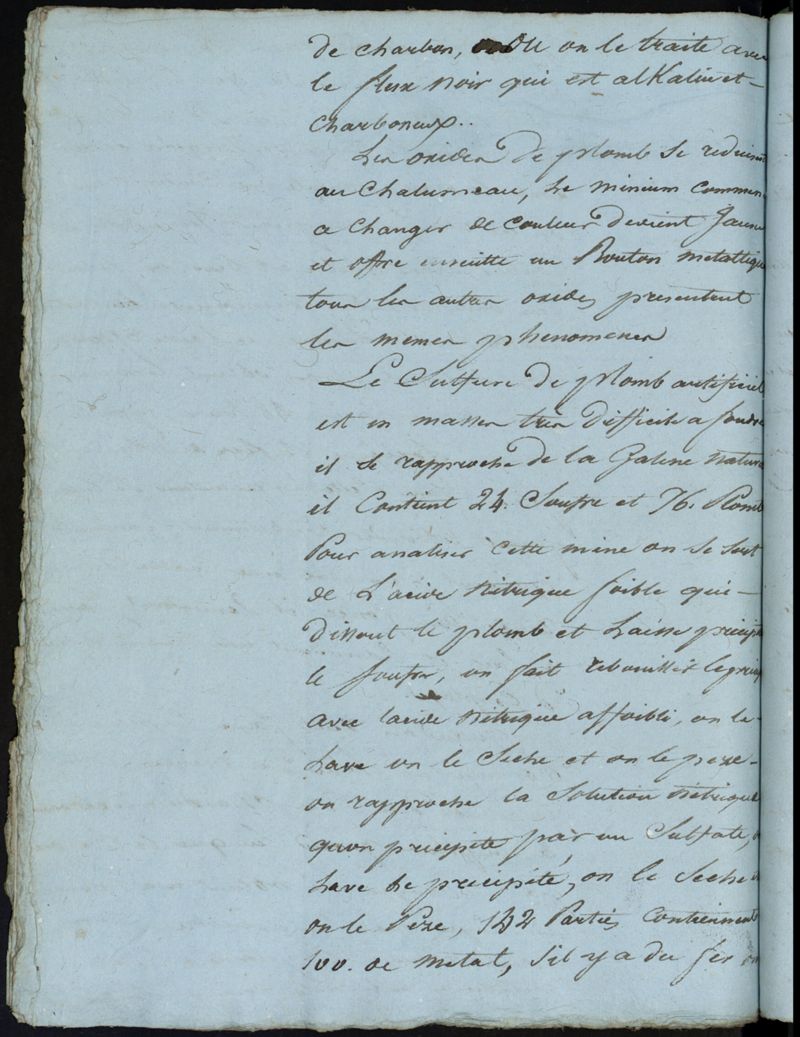 de charbon, ou on le traite avec
le flux noir qui est alkalin et
charboneux..
Les oxides de plomb se reduisent
au Chalumeau, Le minium commence
a changer de couleur devient Jaune
et offre ensuitte un Bouton metallique
tous les autres oxides presentent
les memes phenomenes
Le Sulfure de plomb artificiel
est en masses tres difficile a fondre
il se rapproche de la Galene natur
il Contient 24. Soufre et 76. Plomb
Pour analiser cette mine on se sert
de L'acide Nitrique foible qui
dissout le plomb et Laisse precipit
le soufre, on fait rebouillir le precip
avec lacide Nitrique affoibli, on le
Lave on le Seche et on le peze
on rapproche la Solution Nitrique
quon precipite par un Sulfate,
Lave Le precipité, on le Seche
on le Peze, 142 Parties Contiennent
100. de metal, s'il y a du fer on